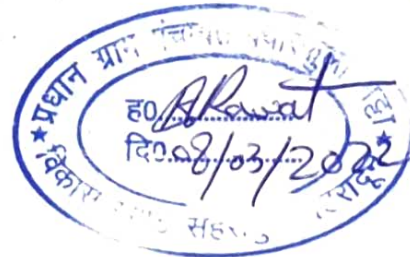 ★ प्रधान ग्राम पंचायत
ह0 Rawat
दि0 08/03/2022
विकास खण्ड सहसपुर देहरादून ★